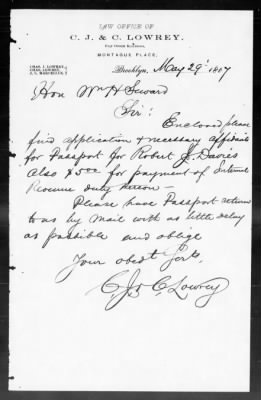 LAW OFFICE OF
C. J. & C. LOWREY.
MONTAGUE PLACE,
CHAS. J. LOWREY,
CHAS. LOWREY,
Brooklyn, May 29' 1867
Hon Wm H Seward
Sir:
Enclosed please
find application & necessary affidavits
for Passport for Robert J. Davies
Also $5.00 for payment of Internal
Revenue duty thereon —
Please have Passport return
to us by mail with as little delay
as possible and oblige
Your obedt Servts.
C. J. & C. Lowrey